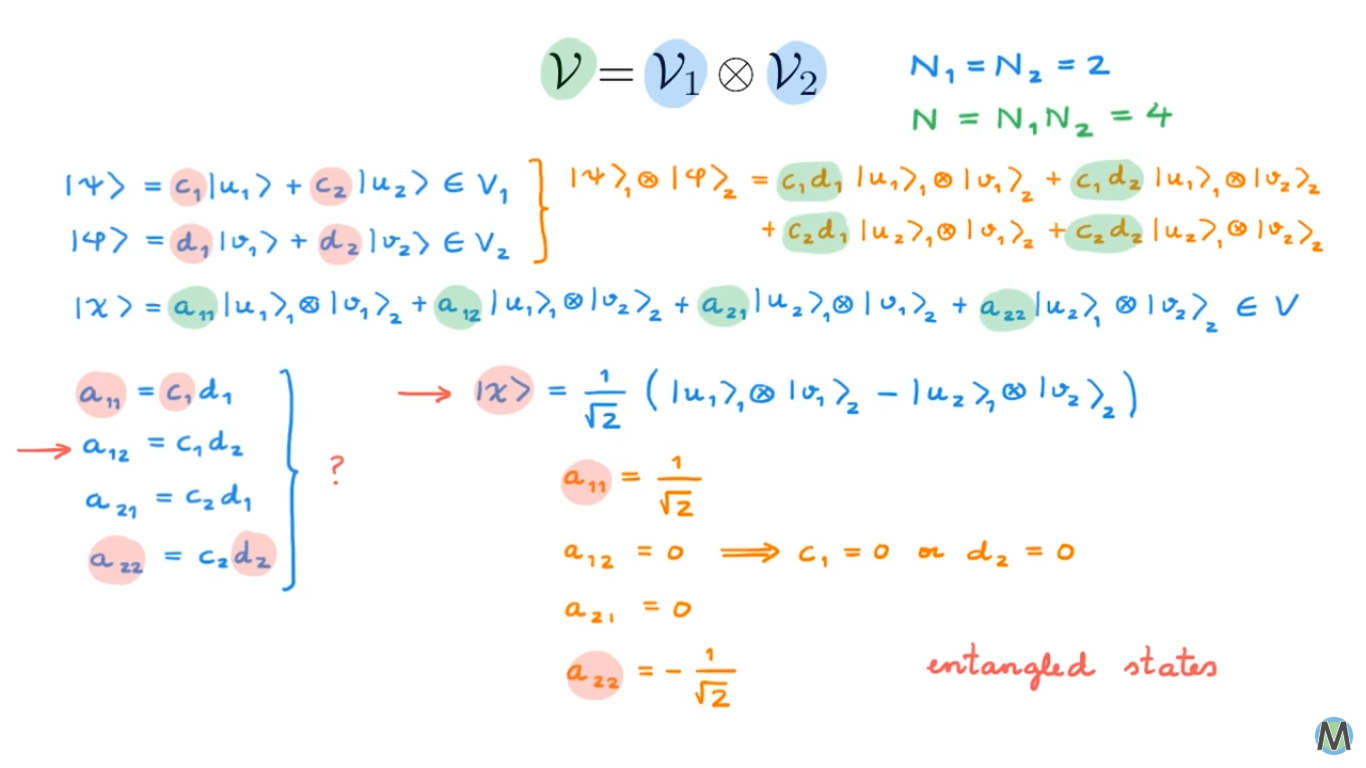 𝒱 = 𝒱₁ ⊗ 𝒱₂
N₁ = N₂ = 2
N = N₁N₂ = 4
|ψ⟩ = c₁|u₁⟩ + c₂|u₂⟩ ∈ V₁
|φ⟩ = d₁|v₁⟩ + d₂|v₂⟩ ∈ V₂
|ψ⟩₁ ⊗ |φ⟩₂ = c₁d₁ |u₁⟩₁ ⊗ |v₁⟩₂ + c₁d₂ |u₁⟩₁ ⊗ |v₂⟩₂
+ c₂d₁ |u₂⟩₁ ⊗ |v₁⟩₂ + c₂d₂ |u₂⟩₁ ⊗ |v₂⟩₂
|χ⟩ = a₁₁ |u₁⟩₁ ⊗ |v₁⟩₂ + a₁₂ |u₁⟩₁ ⊗ |v₂⟩₂ + a₂₁ |u₂⟩₁ ⊗ |v₁⟩₂ + a₂₂ |u₂⟩₁ ⊗ |v₂⟩₂ ∈ V
a₁₁ = c₁d₁
→ a₁₂ = c₁d₂
a₂₁ = c₂d₁
a₂₂ = c₂d₂
?
→ |χ⟩ = 1/√2 (|u₁⟩₁ ⊗ |v₁⟩₂ − |u₂⟩₁ ⊗ |v₂⟩₂)
a₁₁ = 1/√2
a₁₂ = 0 ⟹ c₁ = 0 or d₂ = 0
a₂₁ = 0
a₂₂ = − 1/√2
entangled states
M